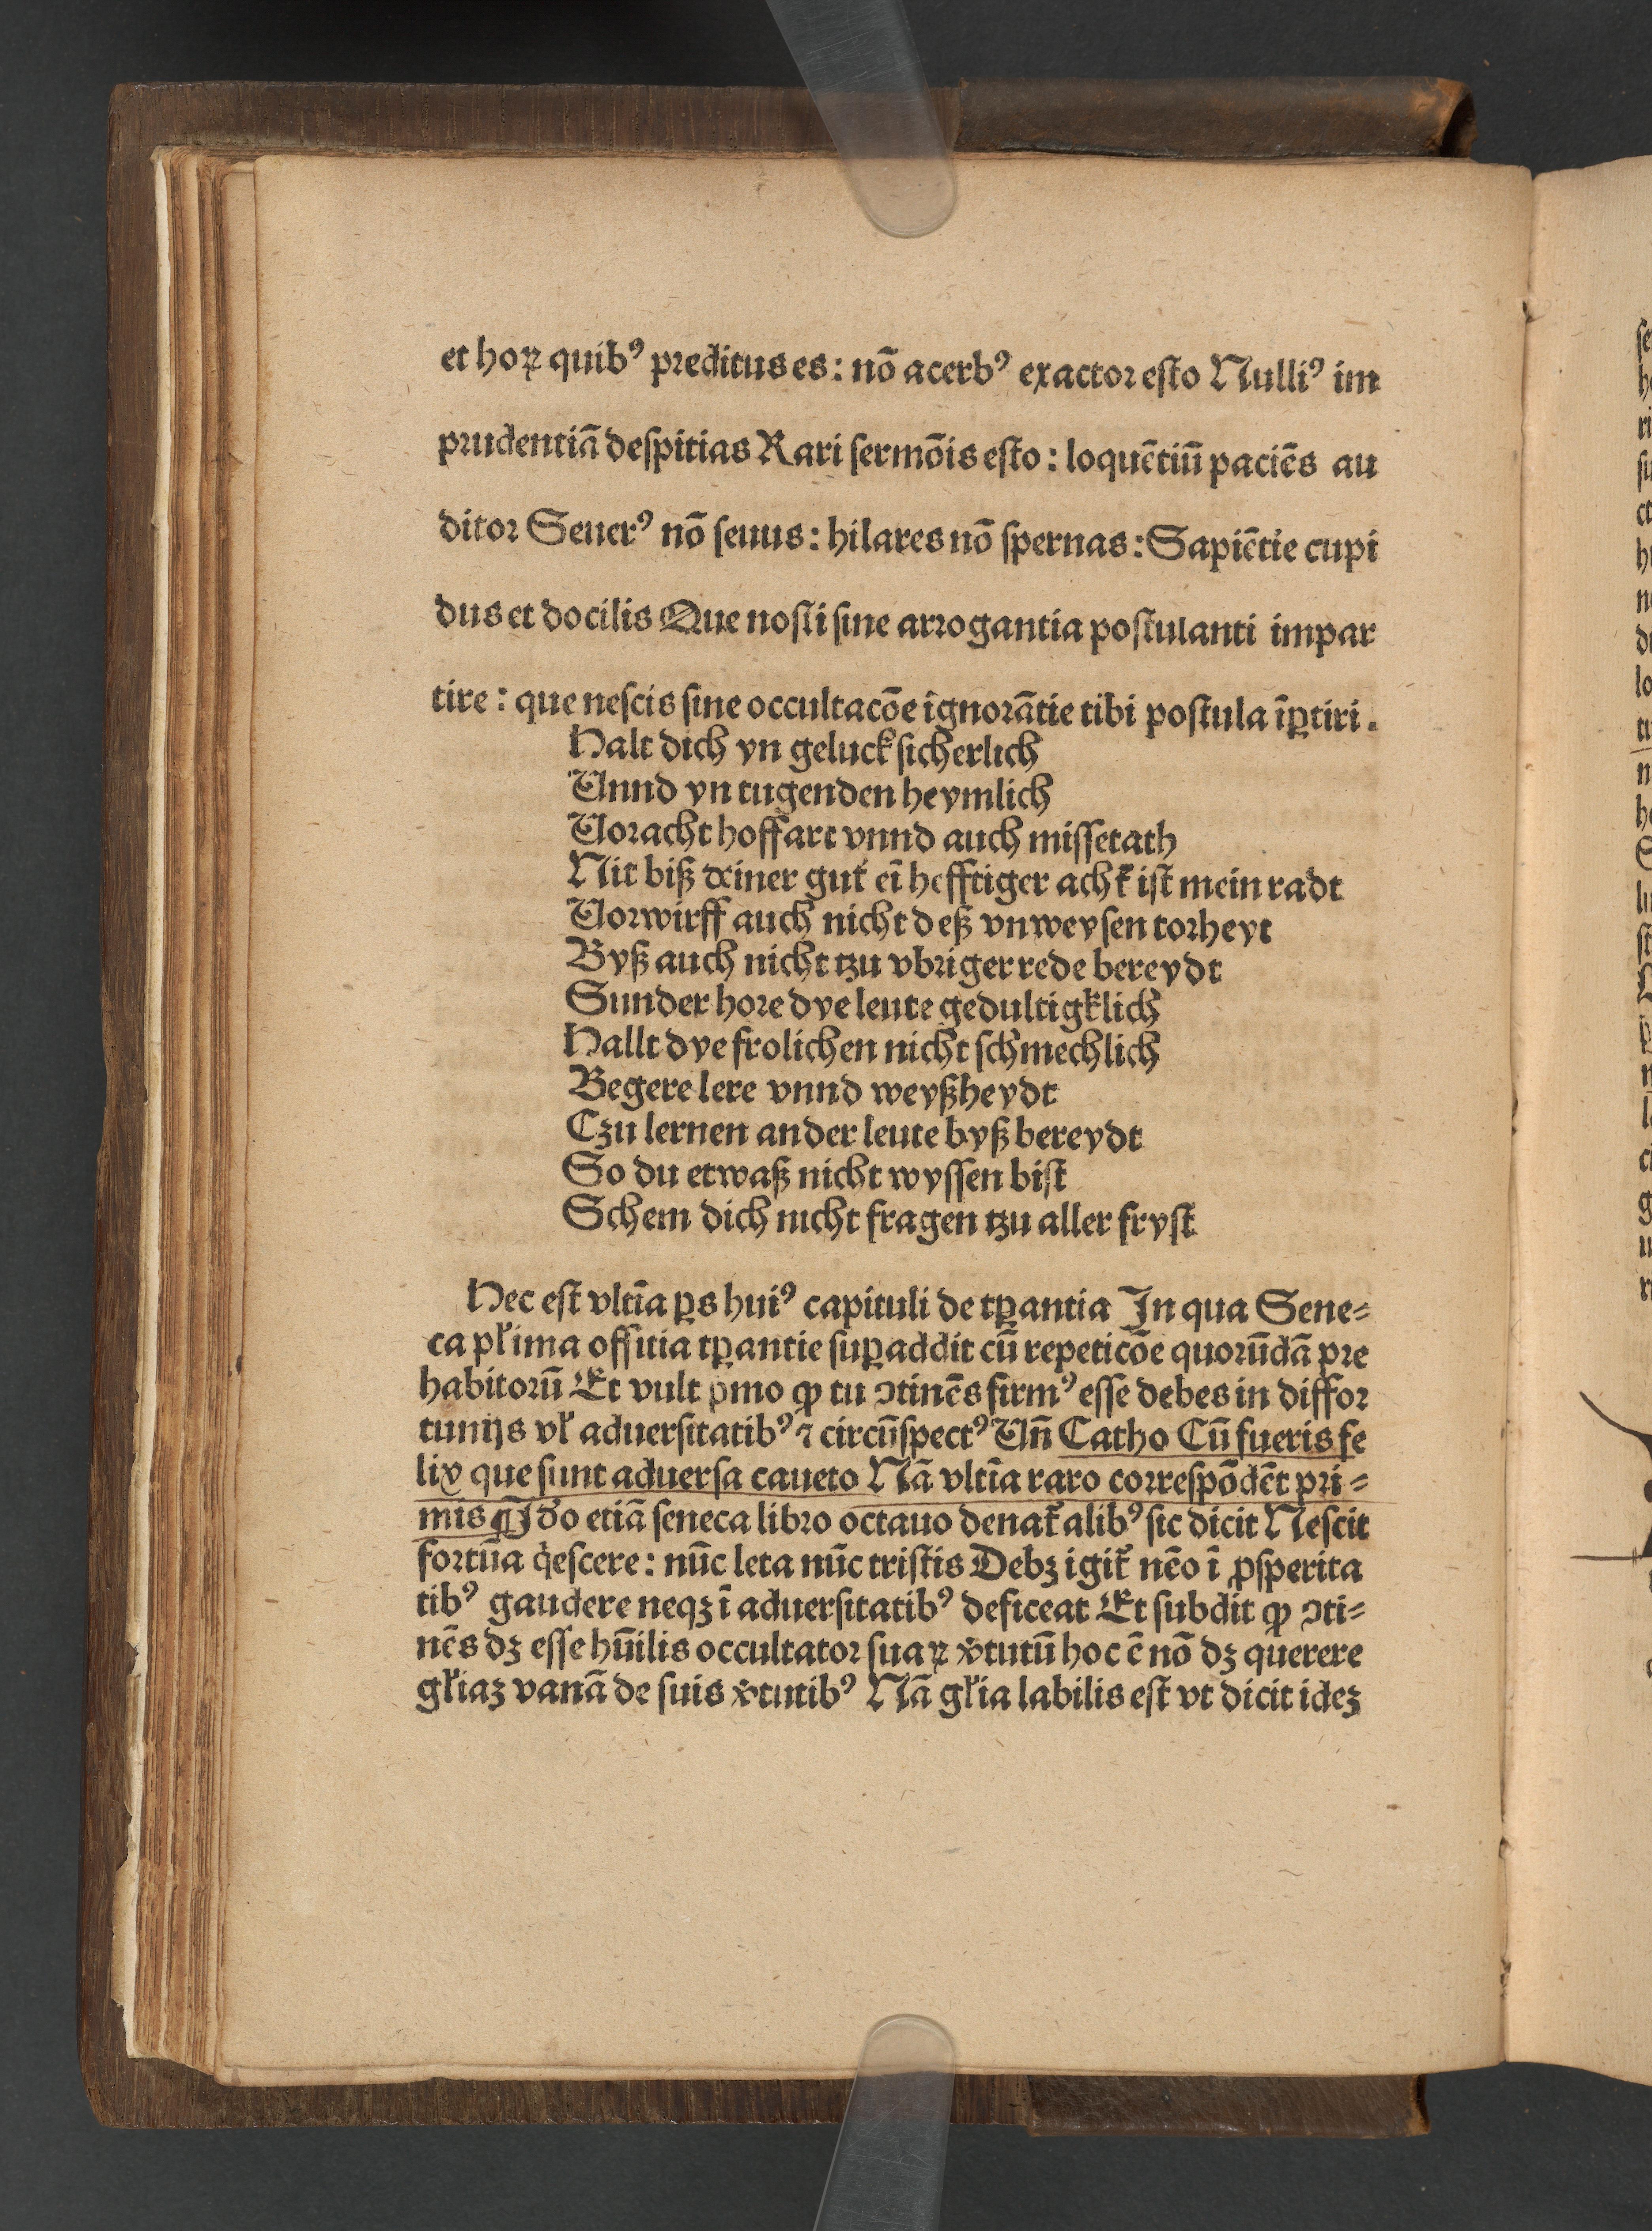 et hoꝝ quibꝰ preditus es: nō acerbꝰ exactor esto Nulliꝰ im
prudentiā despitias Rari sermōis esto: loquētiū paciēs au
ditor Seuerꝰ nō seuus: hilares nō spernas: Sapiētie cupi
dus et docilis Que nosti sine arrogantia postulanti impar
tire: que nescis sine occultacōe īgnorātie tibi postula īꝑtiri.
Halt dich yn geluck sicherlich
Vnnd yn tugenden heymlich
Voracht hoffart vnnd auch missetath
Nit biß deiner gut̛ eī hefftiger acht̛ ist mein radt
Vorwirff auch nicht deß vnweysen torheyt
Byß auch nicht tzu vbriger rede bereydt
Sunder hore dye leute gedultigklich
Hallt dye frolichen nicht schmechlich
Begere lere vnnd weyßheydt
Czu lernen ander leute byß bereydt
So du etwaß nicht wyssen bist
Schem dich nicht fragen tzu aller fryst
Hec est vltīa ꝑs huiꝰ capituli de tꝑantia In qua Sene⸗
ca pl̛ima offitia tꝑantie suꝑaddit cū repeticōe quorūdā pre
habitorū Et vult pͥmo ꝙ tu ꝯtinēs firmꝰ esse debes in diffor
tunijs vl̛ aduersitatibꝰ ⁊ circūspectꝰ Vn̄ Catho Cū fueris fe
lix que sunt aduersa caueto Nā vltīa raro correspōdēt pri⸗
mis ¶ Ido etiā seneca libro octauo de nat̛alibꝰ sic dicit Nescit
fortūa qͥescere: nūc leta nūc tristis Debꝫ igit̛ nēo ī ꝓsperita
tibꝰ gaudere neqꝫ ī aduersitatibꝰ deficeat Et subdit ꝙ ꝯti⸗
nēs dꝫ esse hūilis occultator suaꝝ v̛tutū hoc ē nō dꝫ querere
gl̛iaꝫ vanā de suis v̛tutibꝰ Nā gl̛ia labilis est vt dicit ideꝫ